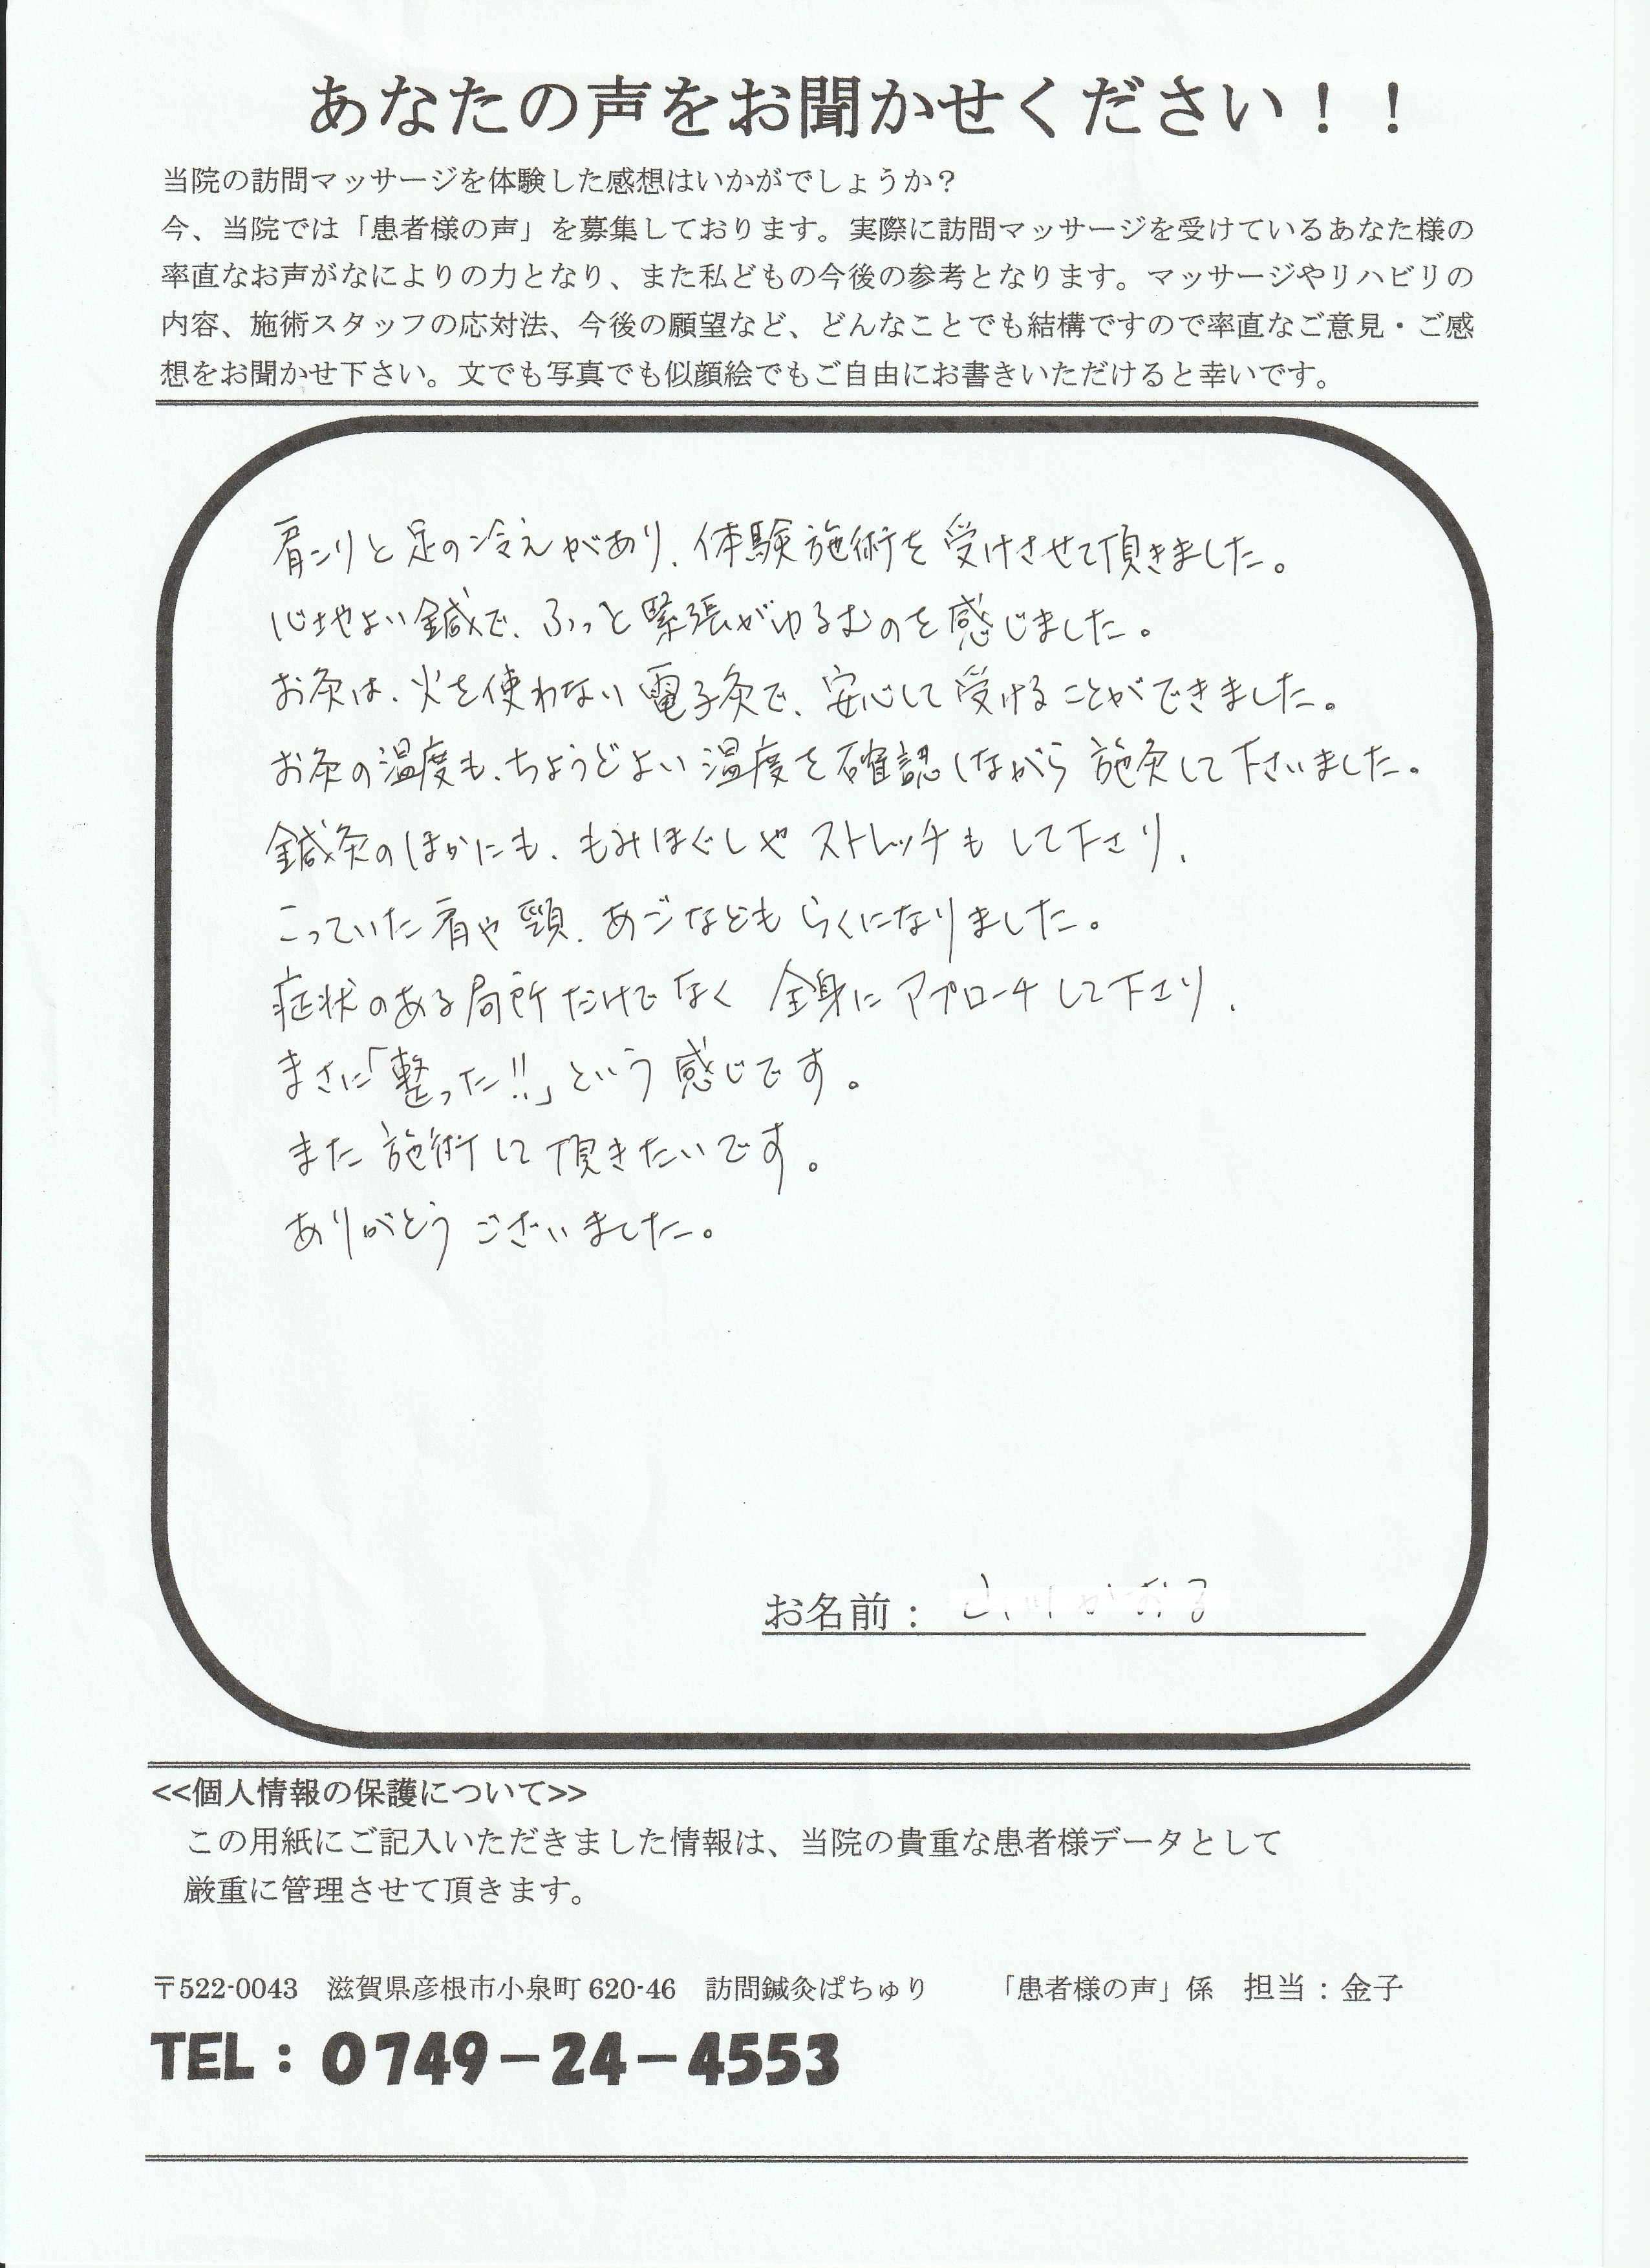 あなたの声をお聞かせください！！
当院の訪問マッサージを体験した感想はいかがでしょうか？
今、当院では「患者様の声」を募集しております。実際に訪問マッサージを受けているあなた様の
率直なお声がなによりの力となり、また私どもの今後の参考となります。マッサージやリハビリの
内容、施術スタッフの応対法、今後の願望など、どんなことでも結構ですので率直なご意見・ご感
想をお聞かせ下さい。文でも写真でも似顔絵でもご自由にお書きいただけると幸いです。
肩こりと足の冷えがあり、体験施術を受けさせて頂きました。
心地よい鍼で、ふっと緊張がゆるむのを感じました。
お灸は、火を使わない電子灸で、安心して受けることができました。
お灸の温度も、ちょうどよい温度を確認しながら施灸して下さいました。
鍼灸のほかにも、もみほぐしやストレッチもして下さり、
こっていた肩や頸、あごなどもらくになりました。
症状のある局所だけでなく全身にアプローチして下さり、
まさに「整った!!」という感じです。
また施術して頂きたいです。
ありがとうございました。
お名前：
<<個人情報の保護について>>
この用紙にご記入いただきました情報は、当院の貴重な患者様データとして
厳重に管理させて頂きます。
〒522-0043　滋賀県彦根市小泉町 620-46　訪問鍼灸ぱちゅり　「患者様の声」係　担当：金子
TEL：0749－24－4553